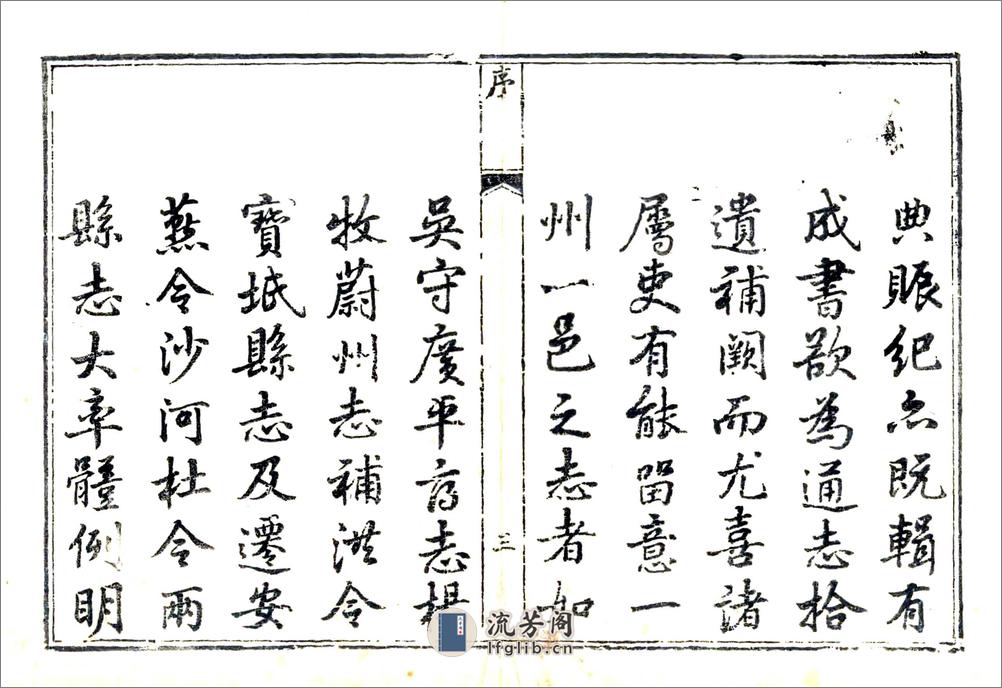 典賑紀亦既輯有
成書欲為通志拾
遺補闕而尤喜諸
屬吏有能留意一
州一邑之志者如
序
三
吳守廣平府志楊
牧蔚州志補洪令
寶坻縣志及遷安
燕令沙河杜令兩
縣志大率體例明
流芳阁
lfglib.cn